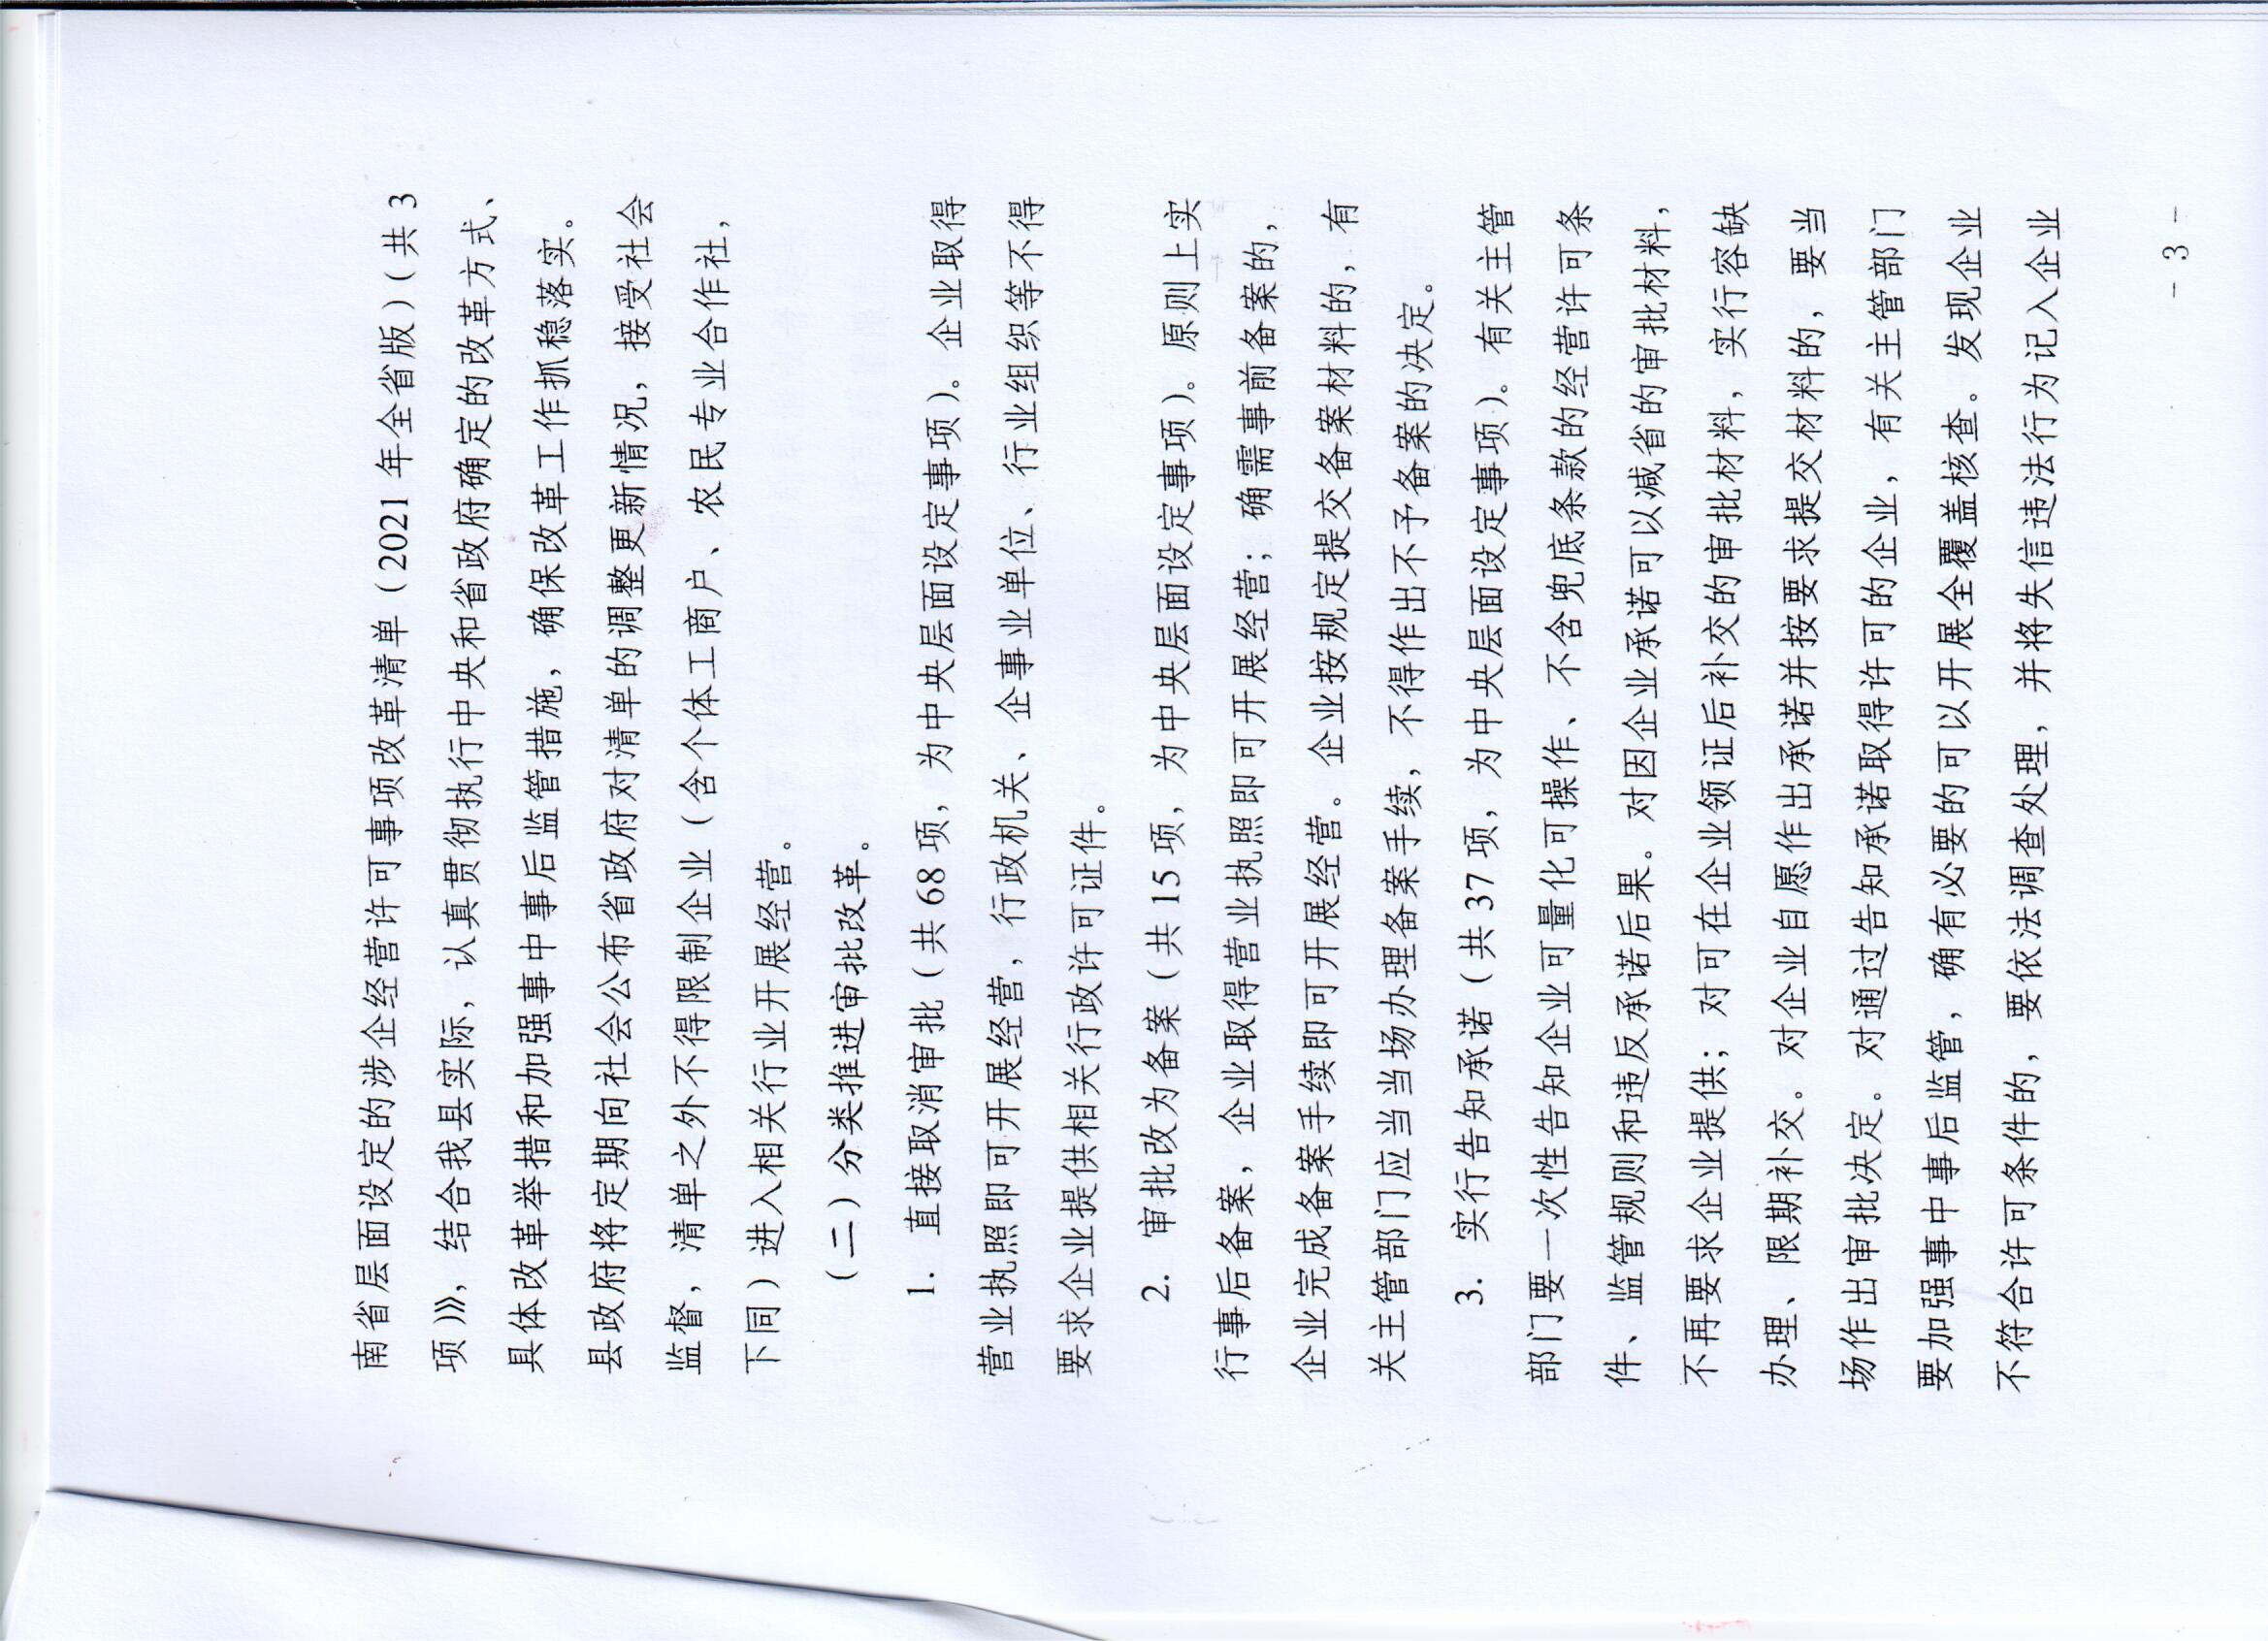 南省层面设定的涉企经营许可事项改革清单（2021 年全省版）（共 3
项）》》，结合我县实际，认真贯彻执行中央和省政府确定的改革方式、
具体改革举措和加强事中事后监管措施，确保改革工作抓稳落实。
县政府将定期向社会公布省政府对清单的调整更新情况，接受社会
监督，清单之外不得限制企业（含个体工商户、农民专业合作社，
下同）进入相关行业开展经营。
（二）分类推进审批改革。
1. 直接取消审批（共 68 项，为中央层面设定事项）。企业取得
营业执照即可开展经营，行政机关、企事业单位、行业组织等不得
要求企业提供相关行政许可证件。
2. 审批改为备案（共 15 项，为中央层面设定事项）。原则上实
行事后备案，企业取得营业执照即可开展经营；确需事前备案的，
企业完成备案手续即可开展经营。企业按规定提交备案材料的，有
关主管部门应当当场办理备案手续，不得作出不予备案的决定。
3. 实行告知承诺（共 37 项，为中央层面设定事项）。有关主管
部门要一次性告知企业可量化可操作、不含兜底条款的经营许可条
件、监管规则和违反承诺后果。对因企业承诺可以减省的审批材料，
不再要求企业提供；对可在企业领证后补交的审批材料，实行容缺
办理、限期补交。对企业自愿作出承诺并按要求提交材料的，要当
场作出审批决定。对通过告知承诺取得许可的企业，有关主管部门
要加强事中事后监管，确有必要的可以开展全覆盖核查。发现企业
不符合许可条件的，要依法调查处理，并将失信违法行为记入企业
- 3 -